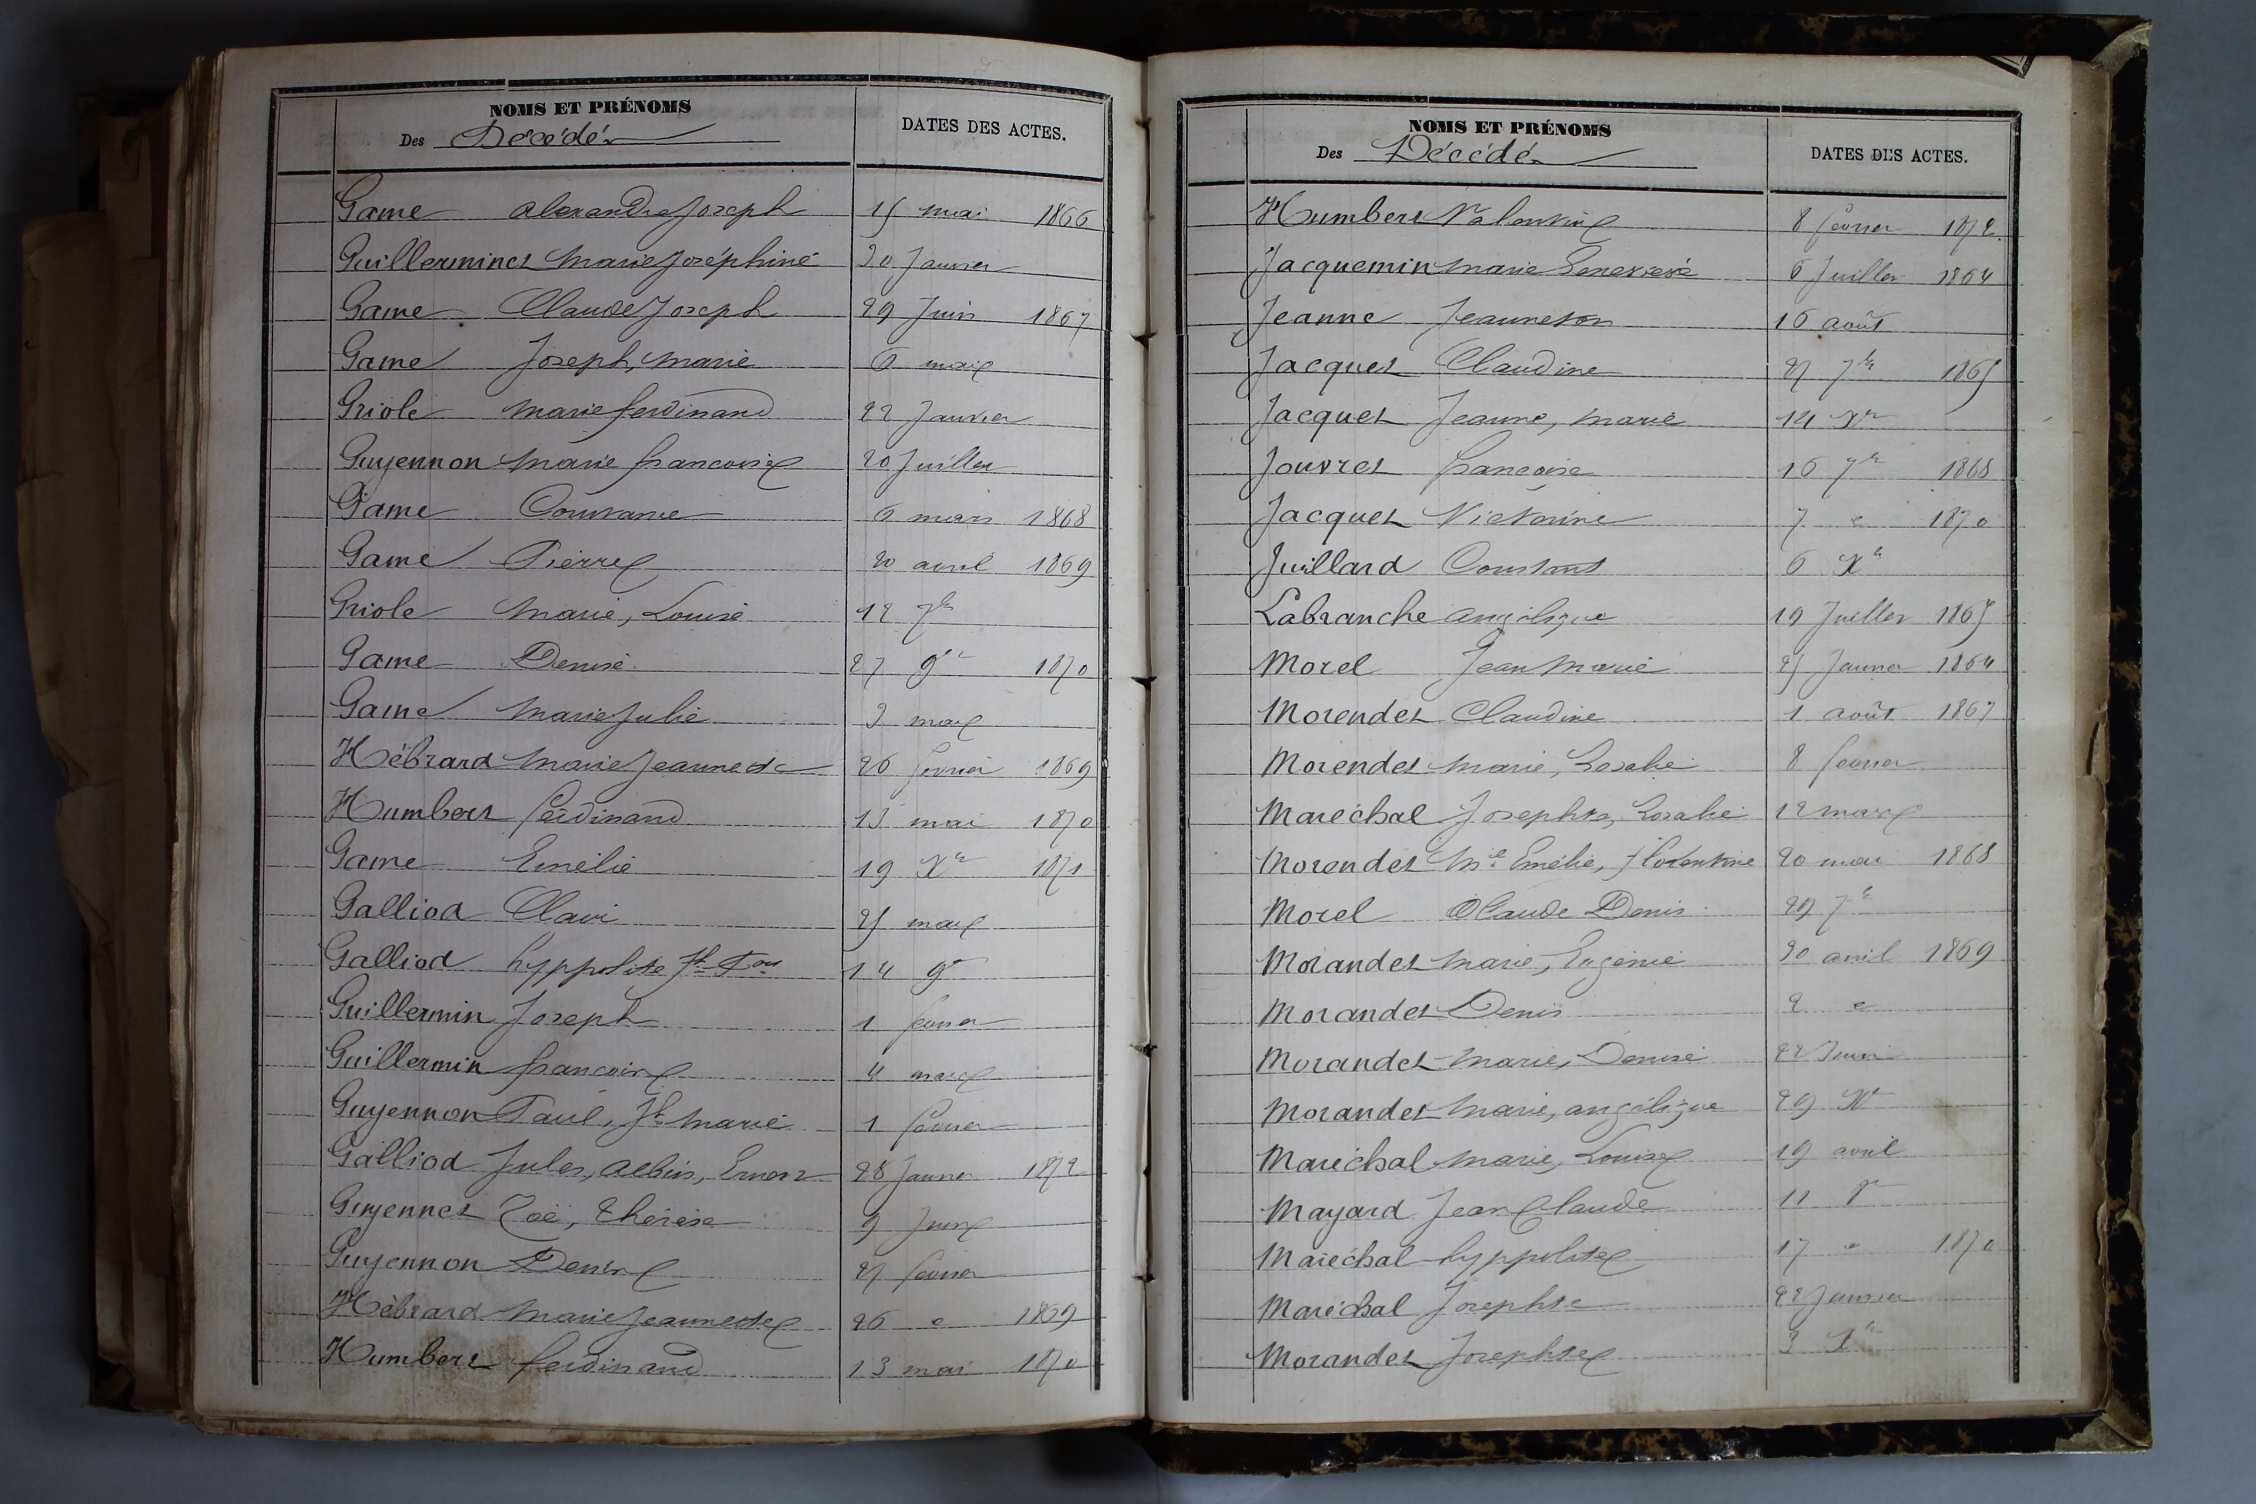 NOMS ET PRÉNOMS
Des Décédés
DATES DES ACTES.
Game Alexandre Joseph 15 mai 1866
Guillerminet Marie Joséphine 30 Janvier
Game Claude Joseph 29 Juin 1867
Game Joseph, Marie 6 mars
Griole Marie ferdinand 22 Janvier
Guyennon Marie francoise 20 Juillet
Game Constance 6 mars 1868
Game Pierre 20 avril 1869
Griole Marie, Louise 12 7bre
Game Denise 27 9bre 1870
Game Marie Julie 3 mars
Hébrard Marie Jeannette 26 fevrier 1869
Humbert ferdinand 13 mai 1870
Game Emélie 19 Xbre 1871
Galliod Clavi 25 mars
Galliod hyppolite Jh 14 9bre
Guillermin Joseph 1 fevrier
Guillermin francoise 4 mars
Guyennon Paul, Jh Marie 1 fevrier
Galliod Jules, Albin, Ernest 28 Janvier 1872
Guyennet Zoë, Thérèse 9 Juin
Guyennon Denise 27 fevrier
Hébrard Marie Jeannette 26 " 1869
Humbert ferdinand 13 mai 1870
NOMS ET PRÉNOMS
Des Décédés
DATES DES ACTES.
Humbert Valentine 8 fevrier 1872
Jacquemin Marie Genevieve 6 Juillet 1864
Jeanne Jeanneton 16 août
Jacquet Claudine 27 7bre 1865
Jacquet Jeanne, Marie 14 Xbre
Jouvret francoise 16 7bre 1868
Jacquet Victorine 7 " 1870
Juillard Constant 6 Xbre
Labranche Angélique 19 Juillet 1865
Morel Jean Marie 25 Janvier 1864
Morendet Claudine 1 août 1867
Morendet Marie, Rosalie 8 fevrier
Maréchal Josephte, Rosalie 12 mars
Morendet Mie Emélie, florentine 20 mai 1868
Morel Claude Denis 29 7bre
Morandet Marie, Eugénie 30 avril 1869
Morandet Denis 2 "
Morandet Marie, Denise 22 Juin
Morandet Marie, angélique 29 Xbre
Maréchal Marie, Louise 19 avril
Mayard Jean Claude 11
Maréchal hyppolite 17 " 1870
Maréchal Josephte 22 Janvier
Morandet Josephte 3 Xbre